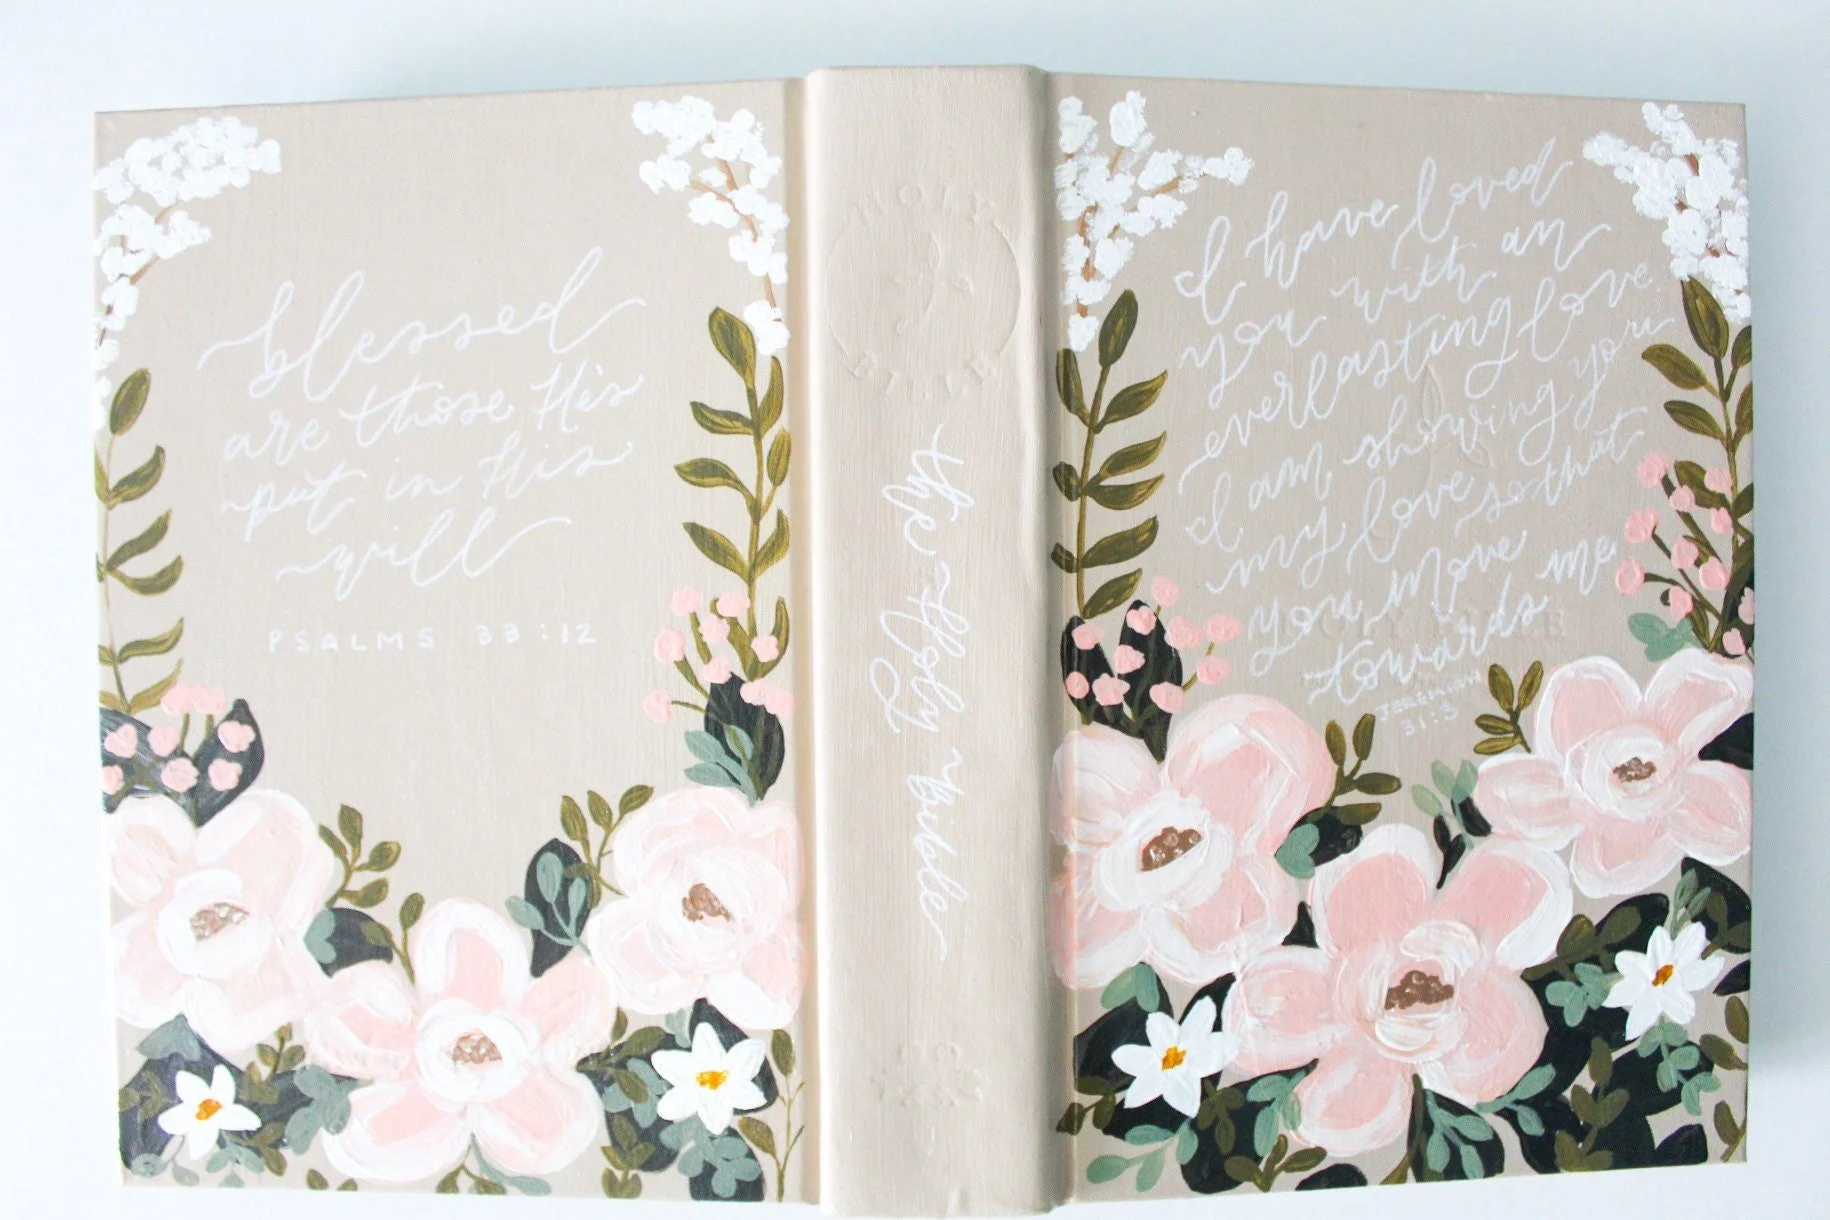 blessed
are those He's
put in His
will
PSALMS 33:12
HOLY
BIBLE
the Holy bible
I have loved
you with an
everlasting love.
I am showing you
my love so that
you move
towards me
HOLY BIBLE
JEREMIAH
31:3